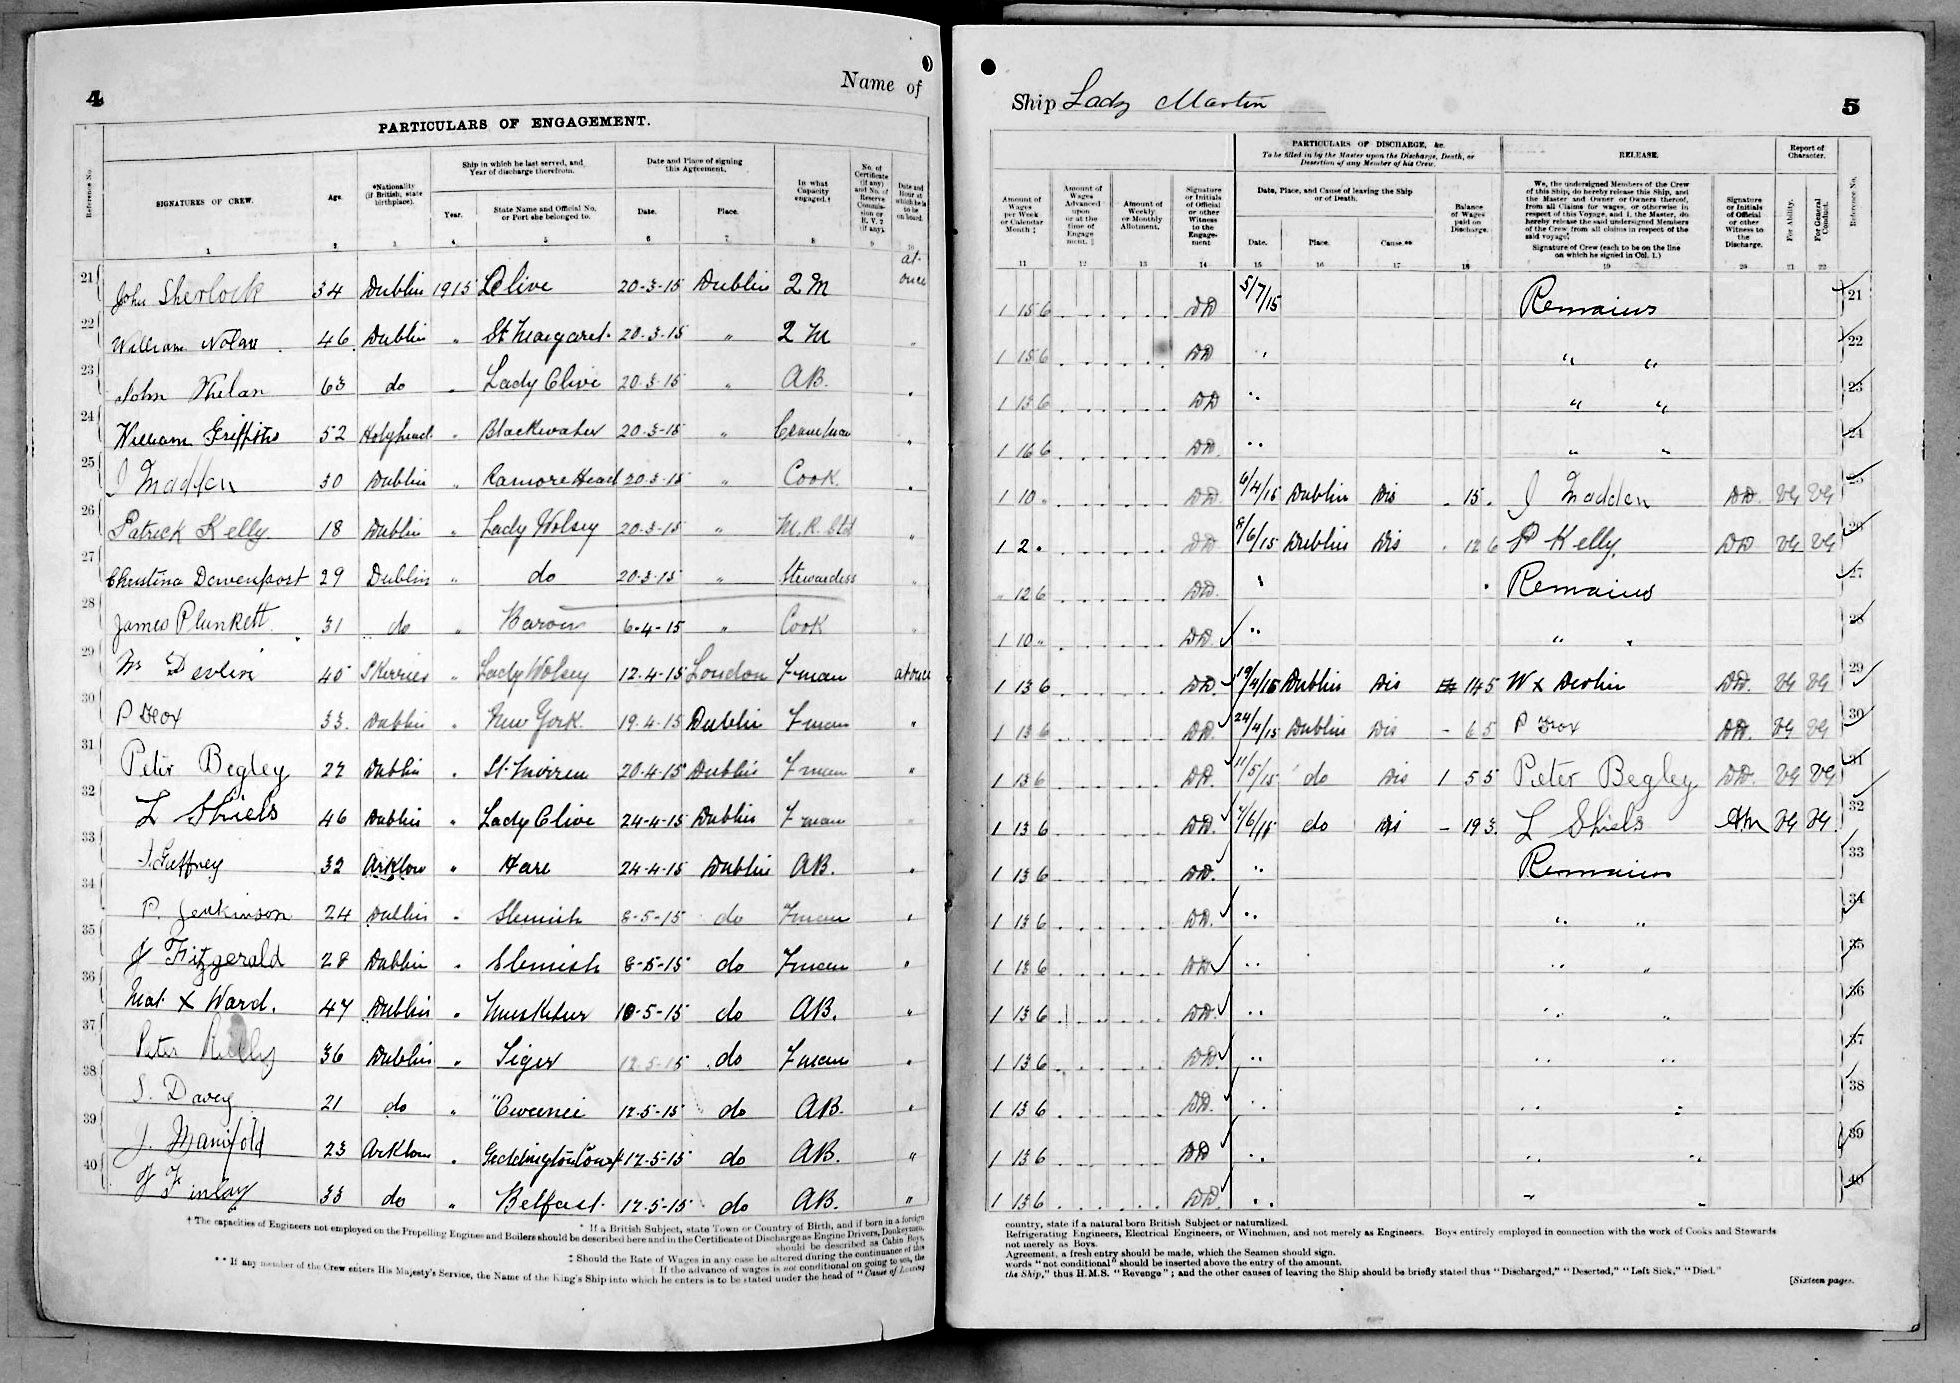 4
Name of
PARTICULARS OF ENGAGEMENT.
Reference No.
SIGNATURES OF CREW.
Age.
*Nationality (if British, state birthplace).
Ship in which he last served, and Year of discharge therefrom.
Year.
State Name and Official No. or Port she belonged to.
Date and Place of signing this Agreement.
Date.
Place.
In what Capacity engaged.†
No. of Certificate (if any) and No. of Reserve Commission or R. V. 2 (if any).
Date and Hour at which he is to be on board.
1 2 3 4 5 6 7 8 9 10
21 John Sherlock 34 Dublin 1915 L Clive 20-3-15 Dublin 2 M at once
22 William Nolan 46 Dublin " St Margaret 20-3-15 " 2 M "
23 John Whelan 63 do " Lady Clive 20-3-15 " AB. "
24 William Griffiths 52 Holyhead " Blackwater 20-3-15 " "
25 J Madden 30 Dublin " Ramore Head 20-3-15 " Cook "
26 Patrick Kelly 18 Dublin " Lady Wolsey 20-3-15 " M. R. Std "
27 Christina Davenport 29 Dublin " do 20-3-15 " Stewardess "
28 James Plunkett 31 do " Baron 6-4-15 " Cook "
29 Wm Devlin 40 Skerries " Lady Wolsey 12-4-15 London Fman at once
30 P 33 Dublin " New York 19-4-15 Dublin Fman "
31 Peter Begley 22 Dublin " St. Mirren 20-4-15 Dublin Fman "
32 L Shiels 46 Dublin " Lady Clive 24-4-15 Dublin Fman "
33 J. Gaffney 32 Arklow " Hare 24-4-15 Dublin AB. "
34 P. Jenkinson 24 Dublin " Slemish 8-5-15 do Fman "
35 J Fitzgerald 28 Dublin " Slemish 8-5-15 do Fman "
36 Mat x Ward. 47 Dublin " 10-5-15 do AB. "
37 Peter 36 Dublin " Tiger 12-5-15 do Fman "
38 Davey 21 do " 12-5-15 do AB. "
39 J. Manifold 23 Arklow " Geddington Court 12-5-15 do AB. "
40 J Finlay 33 do " Belfast 12-5-15 do AB. "
* If a British Subject, state Town or Country of Birth, and if born in a foreign
† The capacities of Engineers not employed on the Propelling Engines and Boilers should be described here and in the Certificate of Discharge as Engine Drivers, Donkeymen,
should be described as Cabin Boys,
‡ Should the Rate of Wages in any case be altered during the continuance of this
If the advance of wages is not conditional on going to sea, the
** If any member of the Crew enters His Majesty's Service, the Name of the King's Ship into which he enters is to be stated under the head of "Cause of Leaving
Ship Lady Martin
5
Amount of Wages per Week or Calendar Month ‡
Amount of Wages Advanced upon or at the time of Engagement. ‖
Amount of Weekly or Monthly Allotment.
Signature or Initials of Official or other Witness to the Engagement
PARTICULARS OF DISCHARGE, &c.
To be filled in by the Master upon the Discharge, Death, or Desertion of any Member of his Crew.
Date, Place, and Cause of leaving the Ship or of Death.
Date.
Place.
Cause.**
Balance of Wages paid on Discharge.
RELEASE.
We, the undersigned Members of the Crew of this Ship, do hereby release this Ship, and the Master and Owner or Owners thereof, from all Claims for wages, or otherwise in respect of this Voyage, and I, the Master, do hereby release the said undersigned Members of the Crew from all claims in respect of the said voyage.
Signature of Crew (each to be on the line on which he signed in Col. 1.)
Signature or Initials of Official or other Witness to the Discharge.
Report of Character.
For Ability.
For General Conduct.
Reference No.
11 12 13 14 15 16 17 18 19 20 21 22
1 15 6 DD 5/7/15 Remains 21
1 15 6 DD " " " 22
1 13 6 DD " " " 23
1 16 6 DD " " " 24
1 10 " DD 6/4/15 Dublin Dis - 15 - J Madden DD VG VG 25
1 2 " DD 8/6/15 Dublin Dis - 12 6 P Kelly DD VG VG 26
" 12 6 DD " Remains 27
1 10 " DD " " " 28
1 13 6 DD 19/4/15 Dublin Dis 14 5 W x Devlin DD VG VG 29
1 13 6 DD 24/4/15 Dublin Dis - 6 5 P DD VG VG 30
1 13 6 DD 11/5/15 do Dis 1 5 5 Peter Begley DD VG VG 31
1 13 6 DD do Dis - 19 3 L Shiels VG VG 32
1 13 6 DD " Remains 33
1 13 6 DD " " " 34
1 13 6 DD " " " 35
1 13 6 DD " " " 36
1 13 6 DD " " " 37
1 13 6 DD " " " 38
1 13 6 DD " " " 39
1 13 6 DD " " " 40
country, state if a natural born British Subject or naturalized.
Refrigerating Engineers, Electrical Engineers, or Winchmen, and not merely as Engineers. Boys entirely employed in connection with the work of Cooks and Stewards
not merely as Boys.
Agreement, a fresh entry should be made, which the Seamen should sign.
words "not conditional" should be inserted above the entry of the amount.
the Ship," thus H.M.S. "Revenge"; and the other causes of leaving the Ship should be briefly stated thus "Discharged," "Deserted," "Left Sick," "Died."
[Sixteen pages.